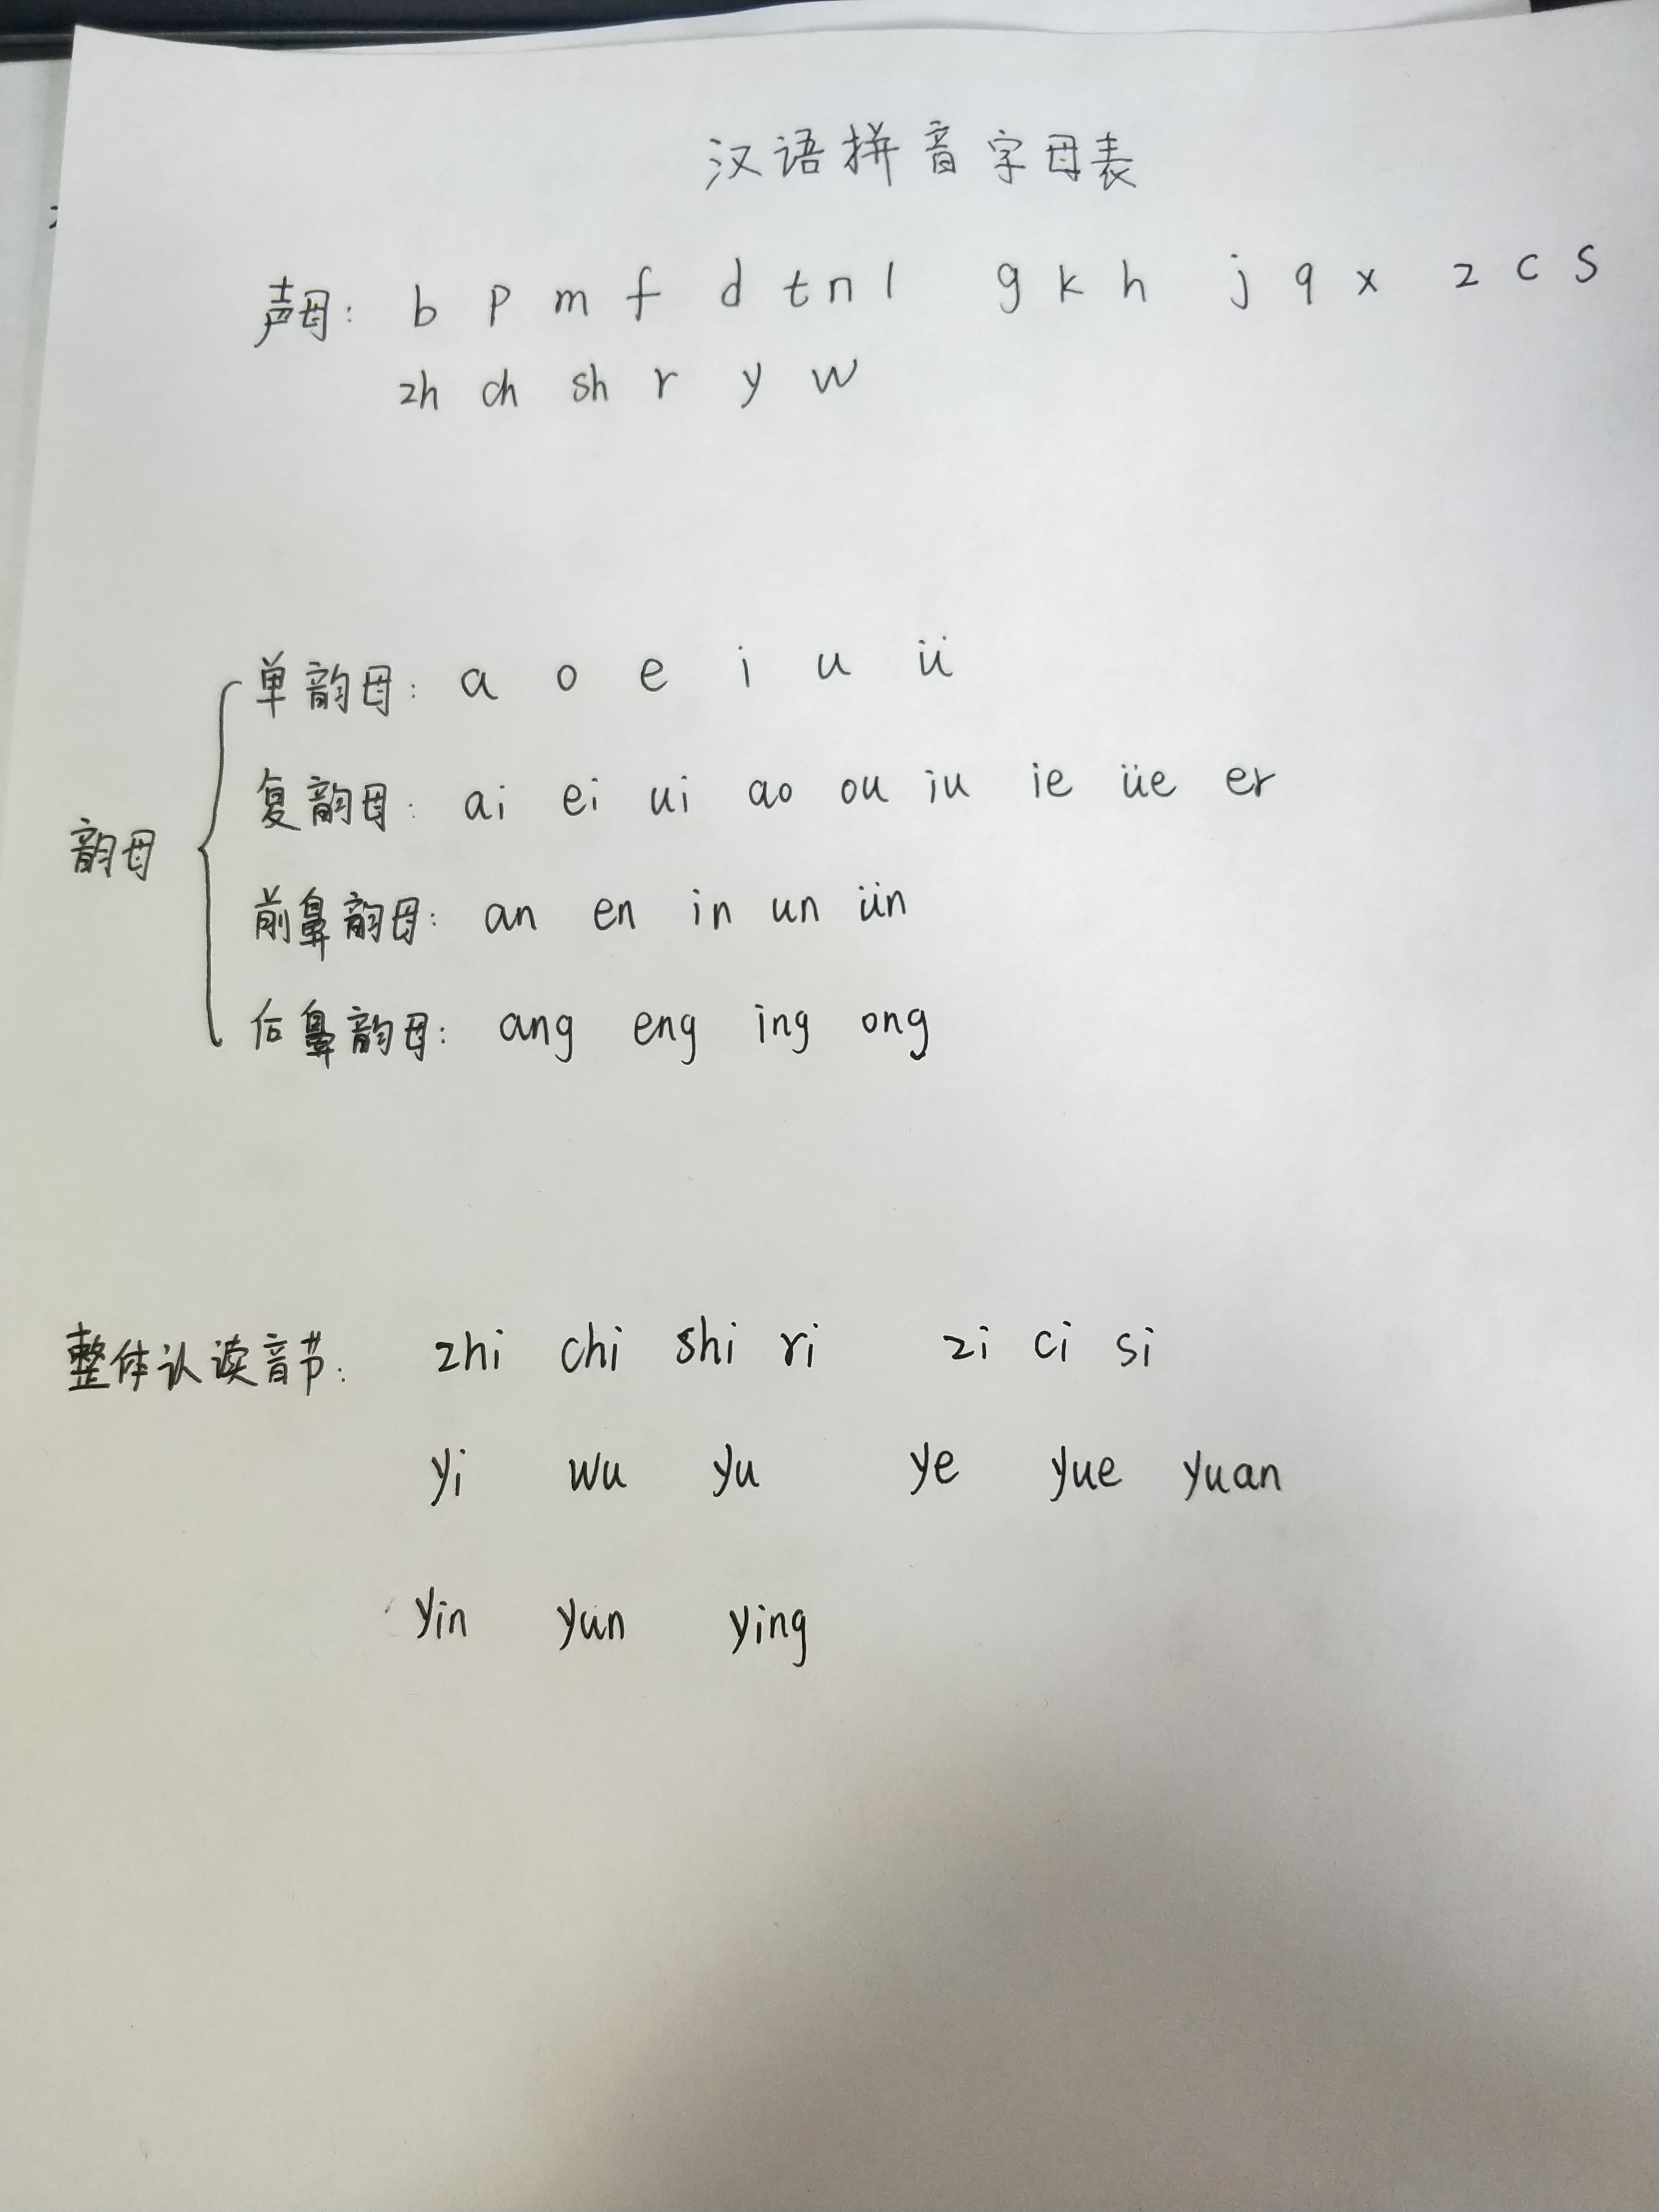 汉语拼音字母表
声母: b p m f d t n l g k h j q x z c s
zh ch sh r y w
韵母
单韵母: a o e i u ü
复韵母: ai ei ui ao ou iu ie üe er
前鼻韵母: an en in un ün
后鼻韵母: ang eng ing ong
整体认读音节: zhi chi shi ri zi ci si
yi wu yu ye yue yuan
yin yun ying